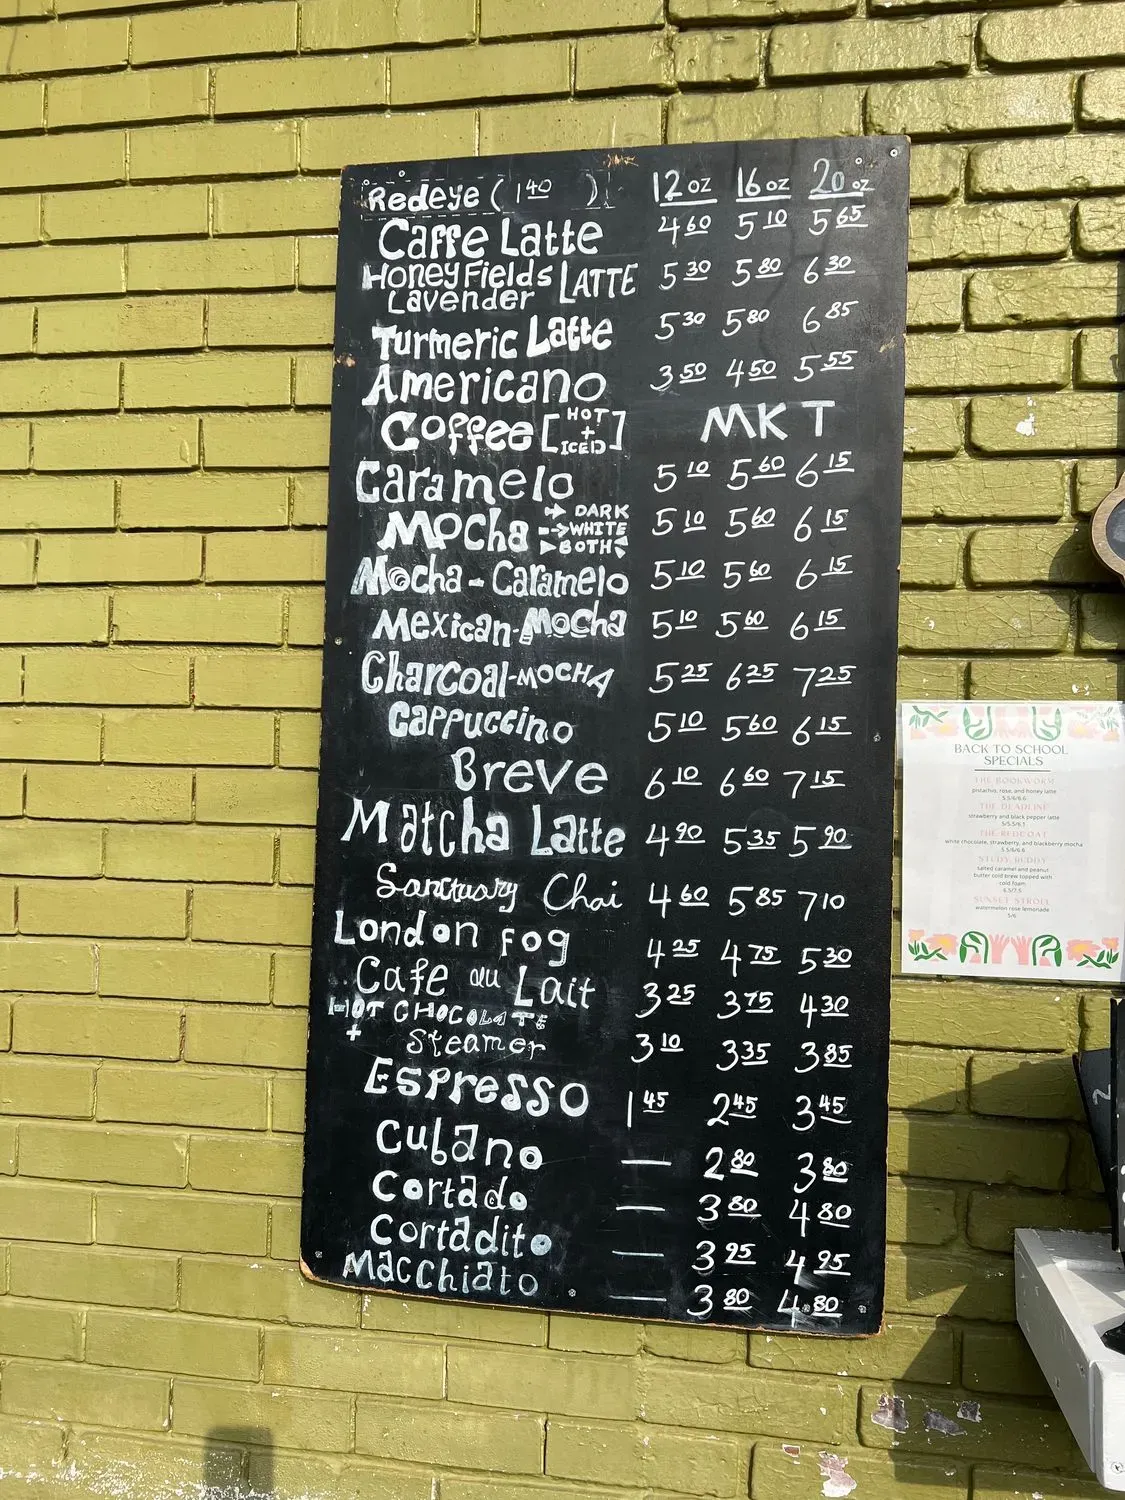 Redeye (1 40 ) 12 oz 16 oz 20 oz
Caffe Latte 4 60 5 10 5 65
Honey Fields LATTE 5 30 5 80 6 30
Lavender
Turmeric Latte 5 30 5 80 6 85
Americano 3 50 4 50 5 55
Coffee [HOT + ICED] MKT
Caramelo 5 10 5 60 6 15
Mocha → DARK 5 10 5 60 6 15
→ WHITE
BOTH
Mocha - Caramelo 5 10 5 60 6 15
Mexican-Mocha 5 10 5 60 6 15
Charcoal-MOCHA 5 25 6 25 7 25
Cappuccino 5 10 5 60 6 15
Breve 6 10 6 60 7 15
Matcha Latte 4 90 5 35 5 90
Sanctuary Chai 4 60 5 85 7 10
London Fog 4 25 4 75 5 30
Cafe au Lait 3 25 3 75 4 30
HOT CHOCOLATE
+ Steamer 3 10 3 35 3 85
Espresso 1 45 2 45 3 45
Cubano — 2 80 3 80
Cortado — 3 80 4 80
Cortadito — 3 95 4 95
Macchiato — 3 80 4.80
BACK TO SCHOOL
SPECIALS
THE BOOKWORM
pistachio, rose, and honey latte
5.5/6/6.6
THE DEADLINE
strawberry and black pepper latte
5/5.5/6.1
THE REDCOAT
white chocolate, strawberry, and blackberry mocha
5.5/6/6.6
STUDY BUDDY
salted caramel and peanut
butter cold brew topped with
cold foam
6.5/7.5
SUNSET STROLL
watermelon rose lemonade
5/6